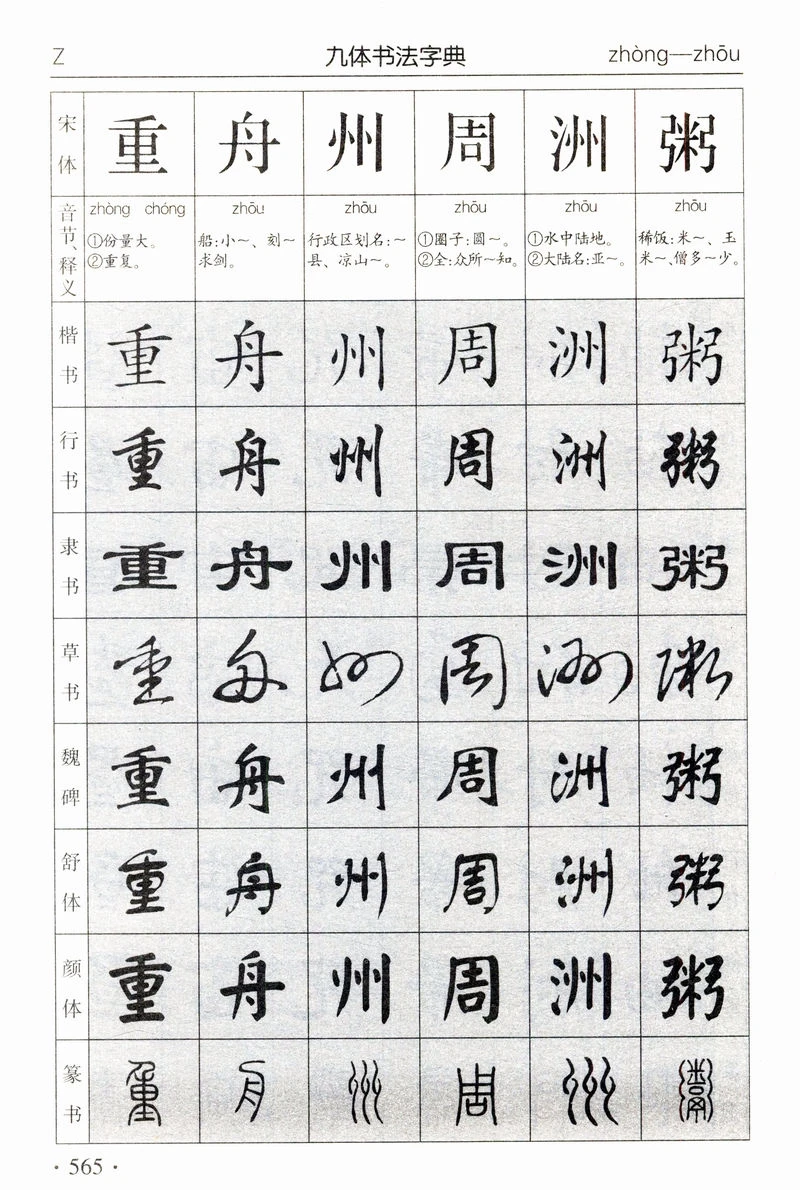 Z 九体书法字典 zhòng—zhōu
宋体 重 舟 州 周 洲 粥
音节、释义 zhòng chóng zhōu zhōu zhōu zhōu zhōu
①份量大。 船:小～、刻～ 行政区划名:～ ①圈子:圆～。 ①水中陆地。 稀饭:米～、玉
②重复。 求剑。 县、凉山～。 ②全:众所～知。 ②大陆名:亚～。 米～、僧多～少。
楷书 重 舟 州 周 洲 粥
行书 重 舟 州 周 洲 粥
隶书 重 舟 州 周 洲 粥
草书 重 舟 州 周 洲 粥
魏碑 重 舟 州 周 洲 粥
舒体 重 舟 州 周 洲 粥
颜体 重 舟 州 周 洲 粥
篆书 重 舟 州 周 洲 粥
·565·